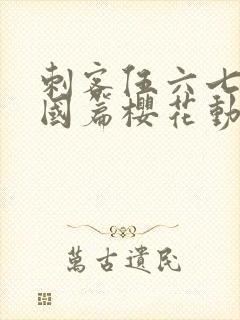 刺客伍六七
國篇櫻花動
萬古遺民